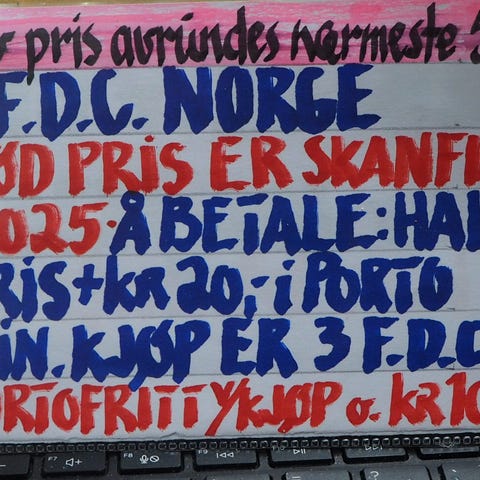 pris avrundes nærmeste
F.D.C. NORGE
ØD PRIS ER SKANFI
025. Å BETALE: HAL
RIS + kR 20,- i PORTO
IN. KJØP ER 3 F.D.C
ORTOFRITT V/KJØP o. kR 10
F7 F8 F9 F11